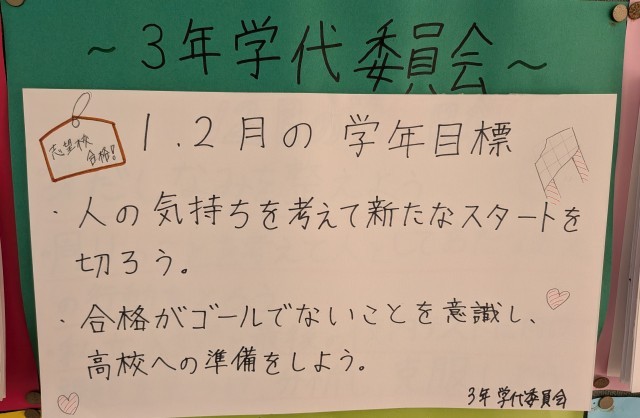 ～3年学代委員会～
志望校
合格!
1.2月の 学年目標
・人の気持ちを考えて新たなスタートを
切ろう。
・合格がゴールでないことを意識し、
高校への準備をしよう。
3年学代委員会